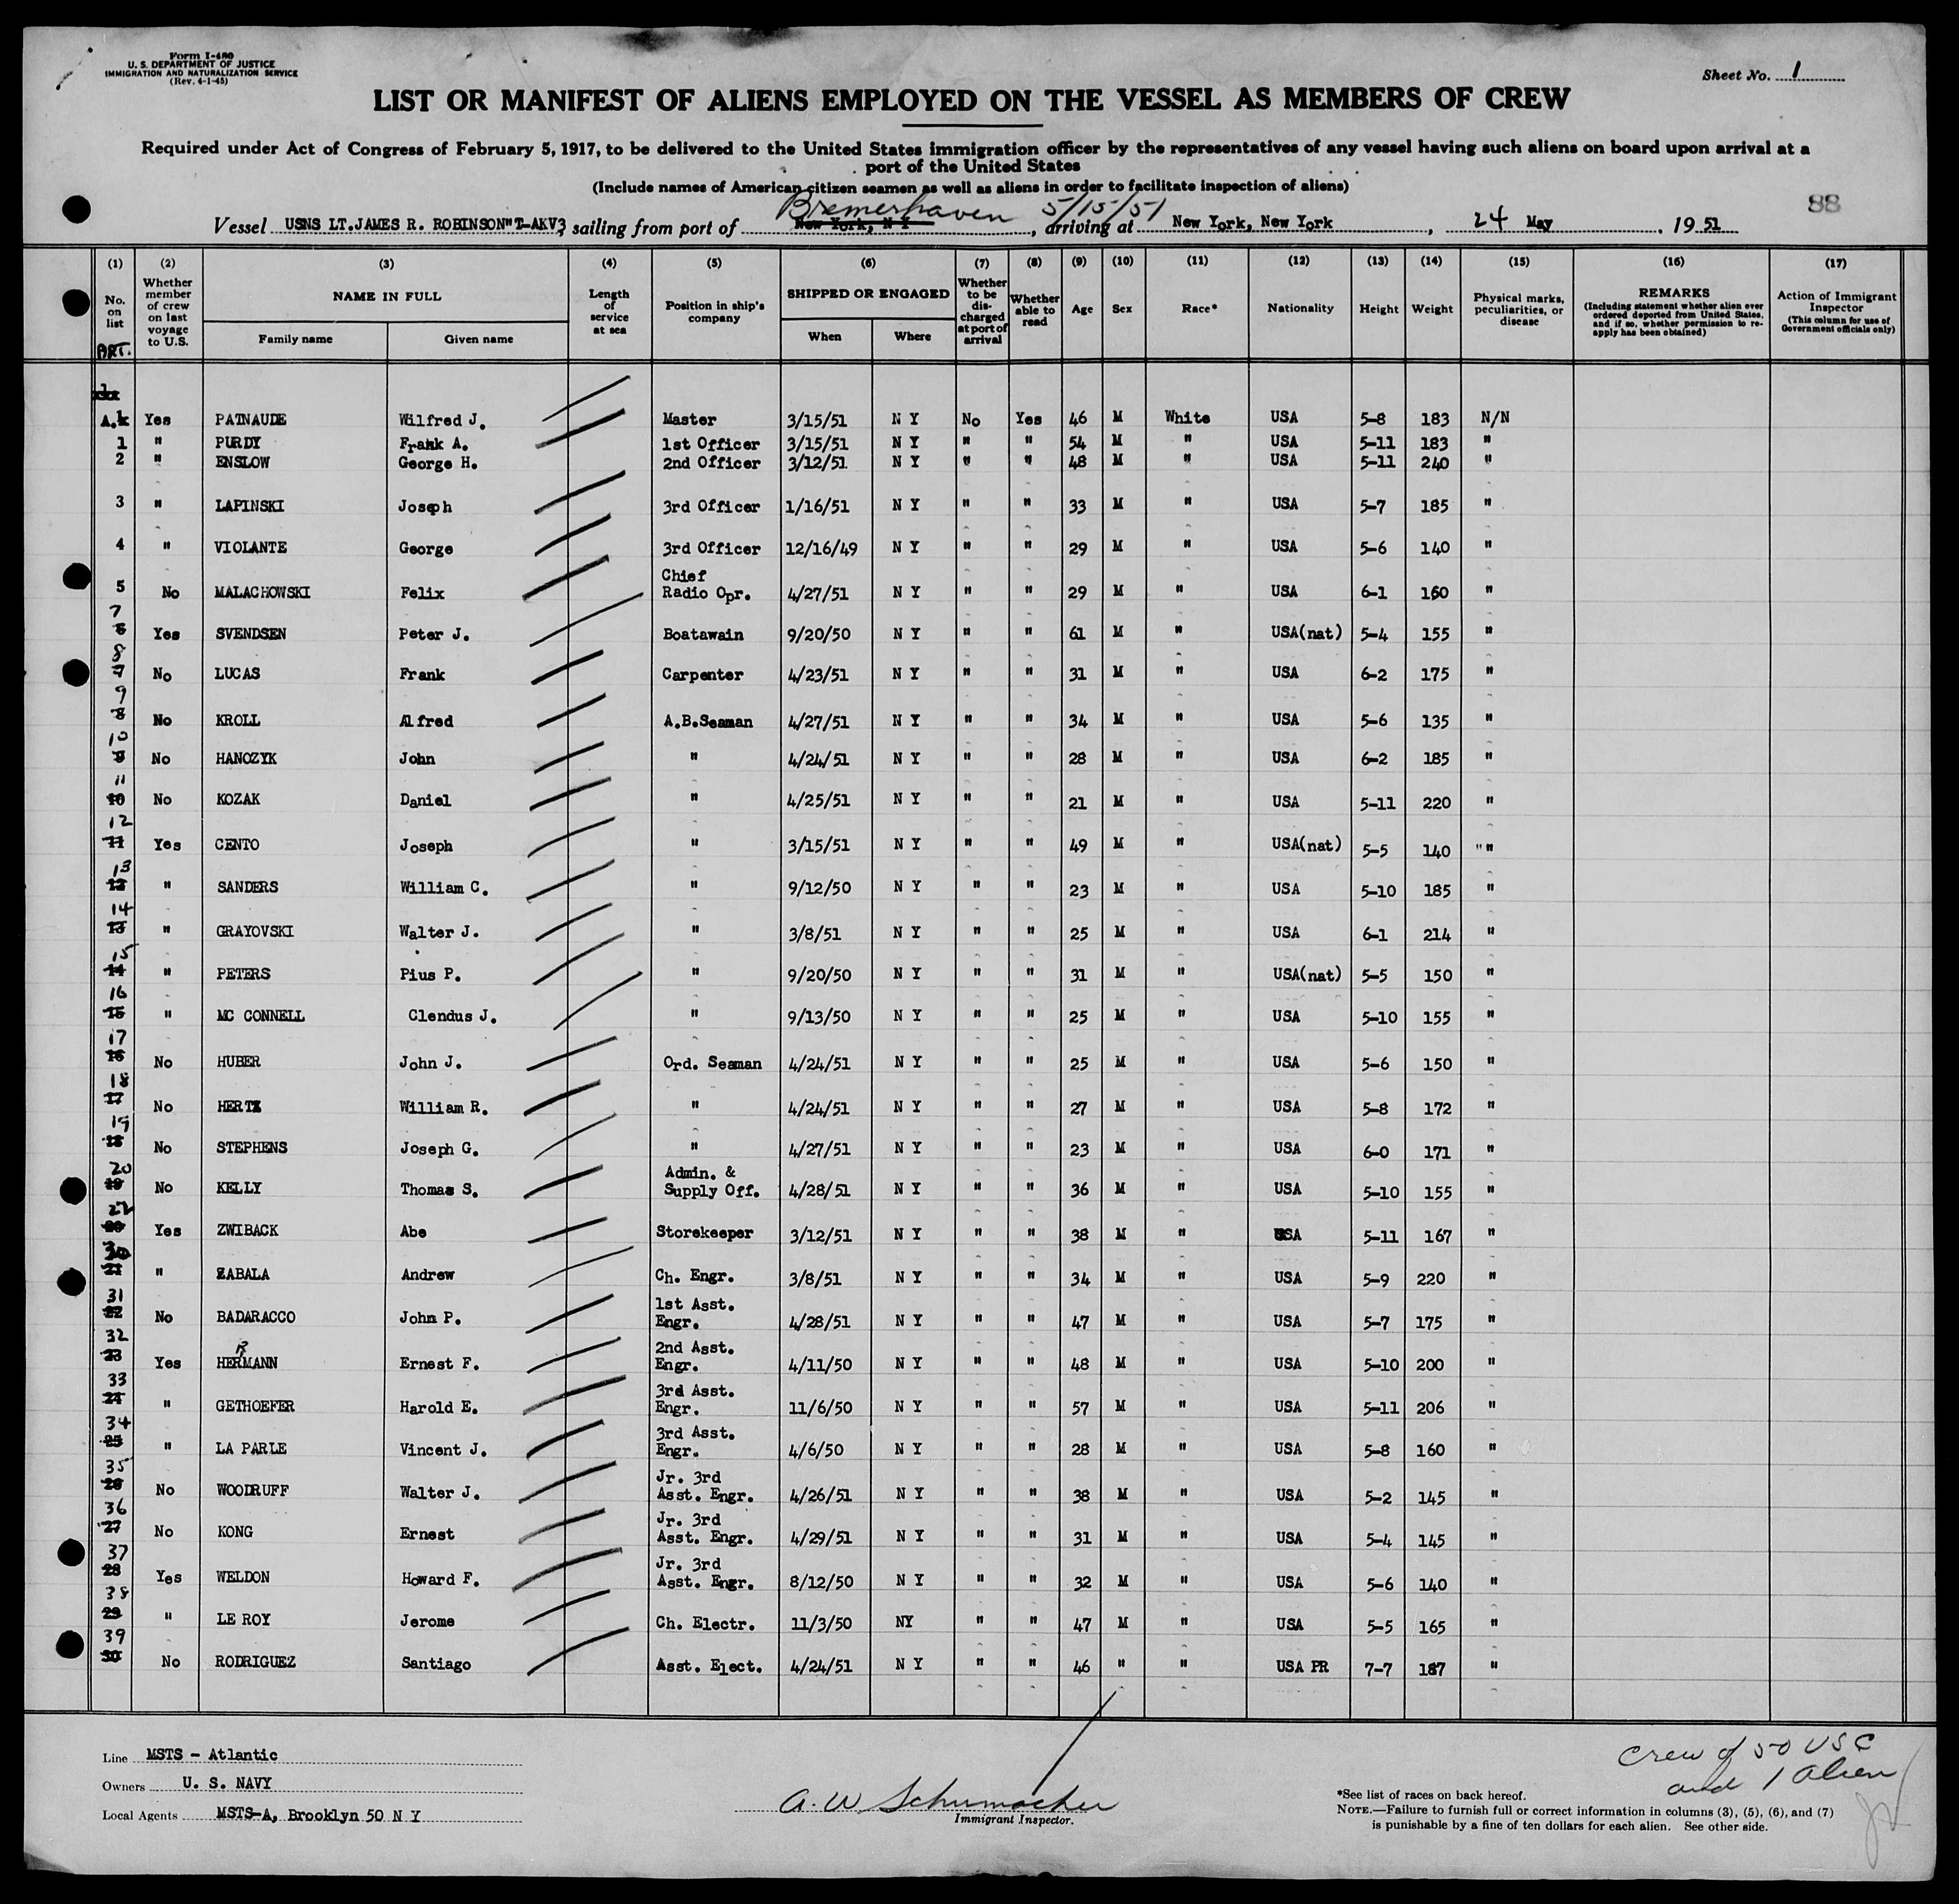 Form I-480
U. S. DEPARTMENT OF JUSTICE
IMMIGRATION AND NATURALIZATION SERVICE
(Rev. 4-1-45)
Sheet No. 1
LIST OR MANIFEST OF ALIENS EMPLOYED ON THE VESSEL AS MEMBERS OF CREW
Required under Act of Congress of February 5, 1917, to be delivered to the United States immigration officer by the representatives of any vessel having such aliens on board upon arrival at a
port of the United States
(Include names of American citizen seamen as well as aliens in order to facilitate inspection of aliens)
88
Bremerhaven 5/15/51
Vessel USNS LT.JAMES R. ROBINSON"T-AKV3, sailing from port of New York, N Y, arriving at New York, New York, 24 May, 1951
(1) (2) (3) (4) (5) (6) (7) (8) (9) (10) (11) (12) (13) (14) (15) (16) (17)
No. on list ART. Whether member of crew on last voyage to U.S. NAME IN FULL Family name Given name Length of service at sea Position in ship's company SHIPPED OR ENGAGED When Where Whether to be discharged at port of arrival Whether able to read Age Sex Race* Nationality Height Weight Physical marks, peculiarities, or disease REMARKS (Including statement whether alien ever ordered deported from United States, and if so, whether permission to reapply has been obtained) Action of Immigrant Inspector (This column for use of Government officials only)
Yes PATNAUDE Wilfred J. Master 3/15/51 N Y No Yes 46 M White USA 5-8 183 N/N
1 " PURDY Frank A. 1st Officer 3/15/51 N Y " " 54 M " USA 5-11 183 "
2 " ENSLOW George H. 2nd Officer 3/12/51 N Y " " 48 M " USA 5-11 240 "
3 " LAPINSKI Joseph 3rd Officer 1/16/51 N Y " " 33 M " USA 5-7 185 "
4 " VIOLANTE George 3rd Officer 12/16/49 N Y " " 29 M " USA 5-6 140 "
5 No MALACHOWSKI Felix Chief Radio Opr. 4/27/51 N Y " " 29 M " USA 6-1 160 "
7 6 Yes SVENDSEN Peter J. Boatawain 9/20/50 N Y " " 61 M " USA(nat) 5-4 155 "
8 7 No LUCAS Frank Carpenter 4/23/51 N Y " " 31 M " USA 6-2 175 "
9 8 No KROLL Alfred A.B.Seaman 4/27/51 N Y " " 34 M " USA 5-6 135 "
10 9 No HANOZYK John " 4/24/51 N Y " " 28 M " USA 6-2 185 "
11 10 No KOZAK Daniel " 4/25/51 N Y " " 21 M " USA 5-11 220 "
12 11 Yes CENTO Joseph " 3/15/51 N Y " " 49 M " USA(nat) 5-5 140 " "
13 12 " SANDERS William C. " 9/12/50 N Y " " 23 M " USA 5-10 185 "
14 13 " GRAYOVSKI Walter J. " 3/8/51 N Y " " 25 M " USA 6-1 214 "
15 14 " PETERS Pius P. " 9/20/50 N Y " " 31 M " USA(nat) 5-5 150 "
16 15 " MC CONNELL Clendus J. " 9/13/50 N Y " " 25 M " USA 5-10 155 "
17 16 No HUBER John J. Ord. Seaman 4/24/51 N Y " " 25 M " USA 5-6 150 "
18 17 No HERTZ William R. " 4/24/51 N Y " " 27 M " USA 5-8 172 "
19 18 No STEPHENS Joseph G. " 4/27/51 N Y " " 23 M " USA 6-0 171 "
20 19 No KELLY Thomas S. Admin. & Supply Off. 4/28/51 N Y " " 36 M " USA 5-10 155 "
22 20 Yes ZWIBACK Abe Storekeeper 3/12/51 N Y " " 38 M " USA 5-11 167 "
30 21 " ZABALA Andrew Ch. Engr. 3/8/51 N Y " " 34 M " USA 5-9 220 "
31 22 No BADARACCO John P. 1st Asst. Engr. 4/28/51 N Y " " 47 M " USA 5-7 175 "
32 23 Yes HERMANN R Ernest F. 2nd Asst. Engr. 4/11/50 N Y " " 48 M " USA 5-10 200 "
33 24 " GETHOEFER Harold E. 3rd Asst. Engr. 11/6/50 N Y " " 57 M " USA 5-11 206 "
34 25 " LA PARLE Vincent J. 3rd Asst. Engr. 4/6/50 N Y " " 28 M " USA 5-8 160 "
35 26 No WOODRUFF Walter J. Jr. 3rd Asst. Engr. 4/26/51 N Y " " 38 M " USA 5-2 145 "
36 27 No KONG Ernest Jr. 3rd Asst. Engr. 4/29/51 N Y " " 31 M " USA 5-4 145 "
37 28 Yes WELDON Howard F. Jr. 3rd Asst. Engr. 8/12/50 N Y " " 32 M " USA 5-6 140 "
38 29 " LE ROY Jerome Ch. Electr. 11/3/50 NY " " 47 M " USA 5-5 165 "
39 30 No RODRIGUEZ Santiago Asst. Elect. 4/24/51 N Y " " 46 " " USA PR 7-7 187 "
Line MSTS - Atlantic
Owners U. S. NAVY
Local Agents MSTS-A, Brooklyn 50 N Y
A. W Schumacher
Immigrant Inspector.
Crew of 50 USC
and 1 Alien
*See list of races on back hereof.
NOTE.—Failure to furnish full or correct information in columns (3), (5), (6), and (7)
is punishable by a fine of ten dollars for each alien. See other side.